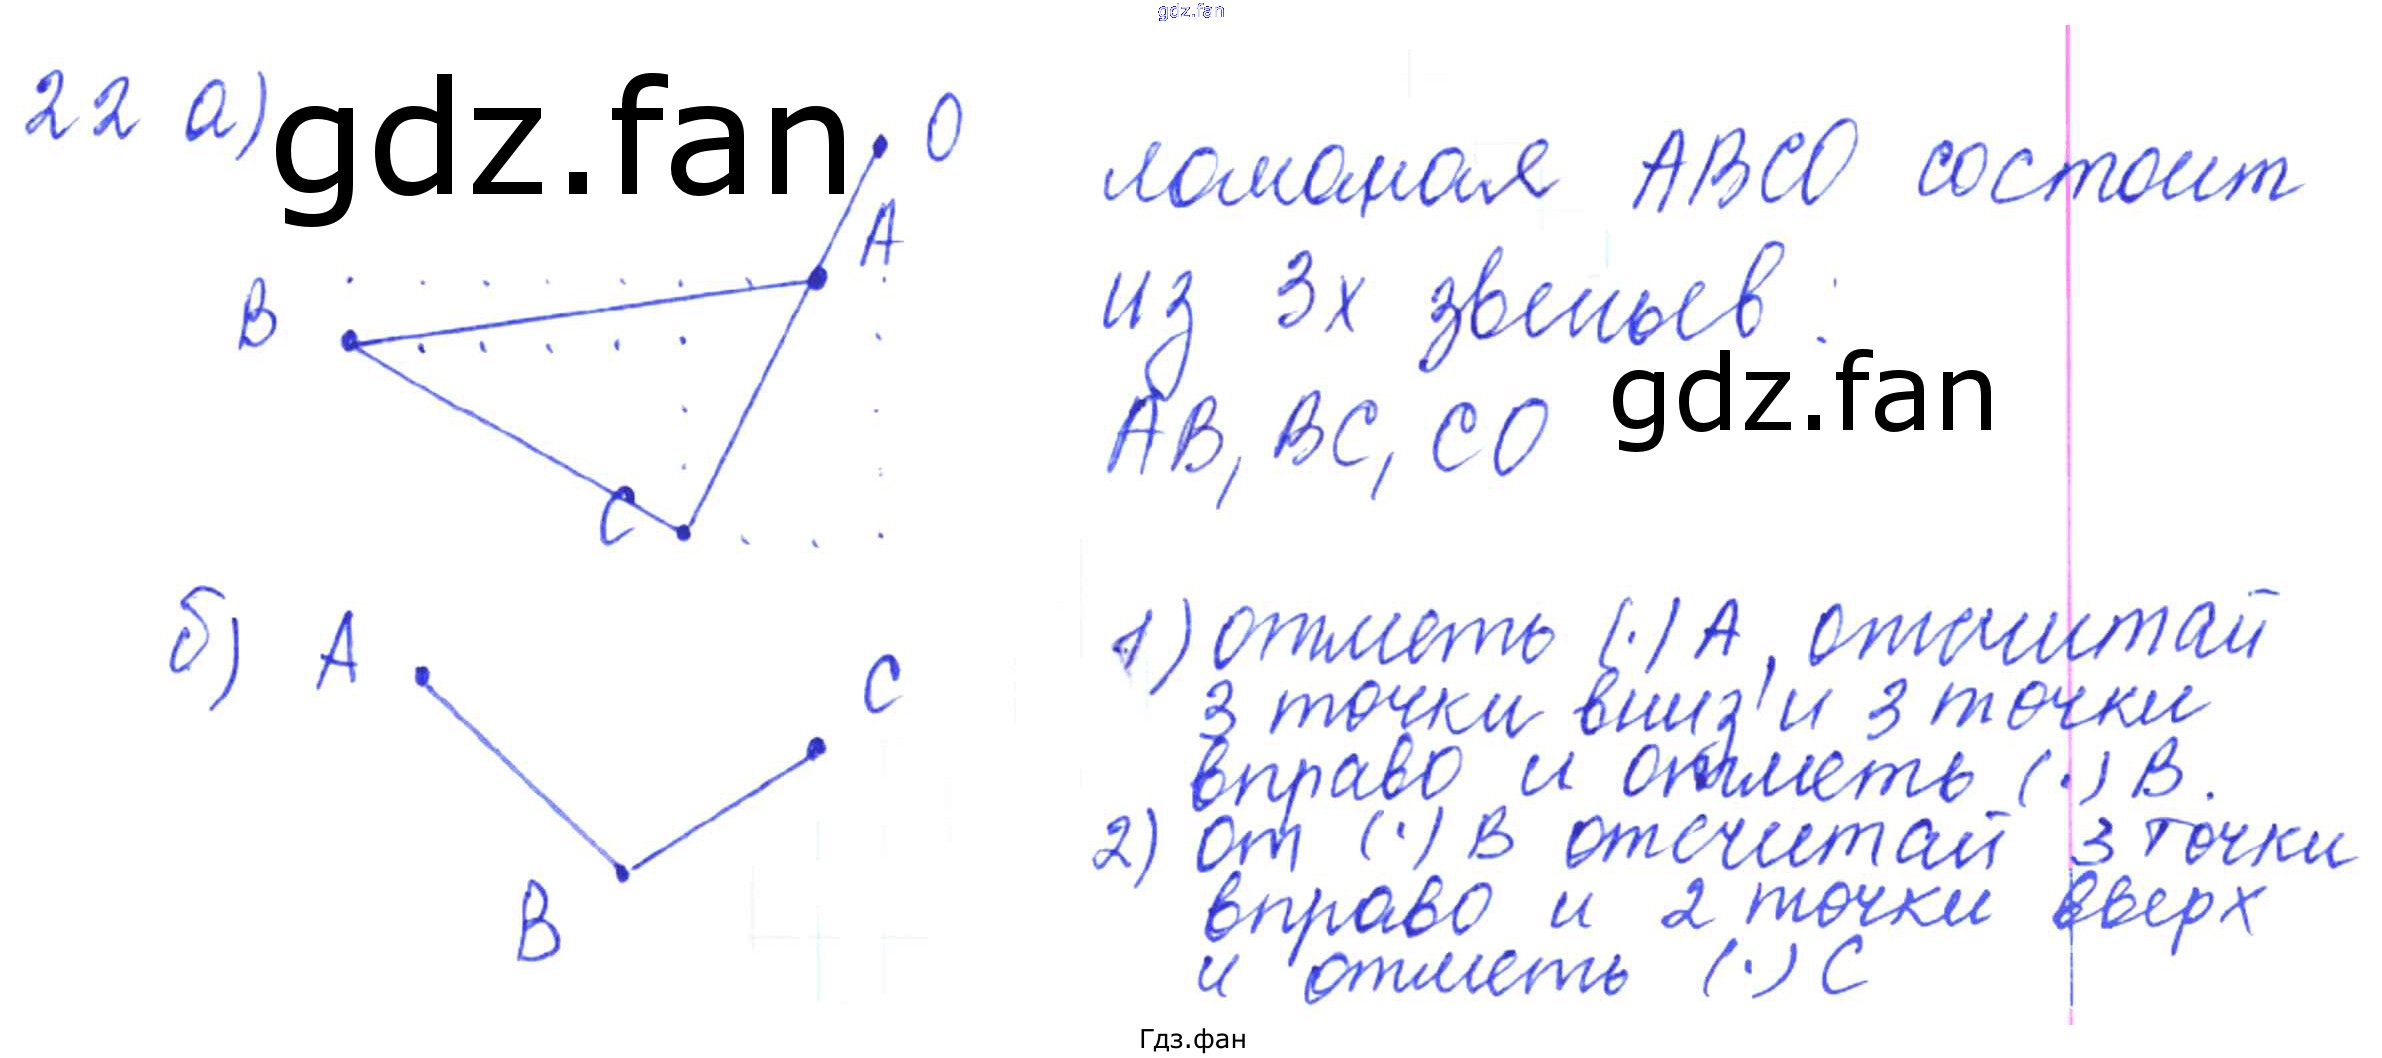 gdz.fan
22 а) gdz.fan
O
A
B
C
ломаная ABCO состоит
из 3х звеньев:
AB, BC, CO
gdz.fan
б) A
C
B
1) отметь (·) A, отсчитай
3 точки вниз и 3 точки
вправо и отметь (·) B.
2) от (·) B отсчитай 3 точки
вправо и 2 точки вверх
и отметь (·) C
Гдз.фан